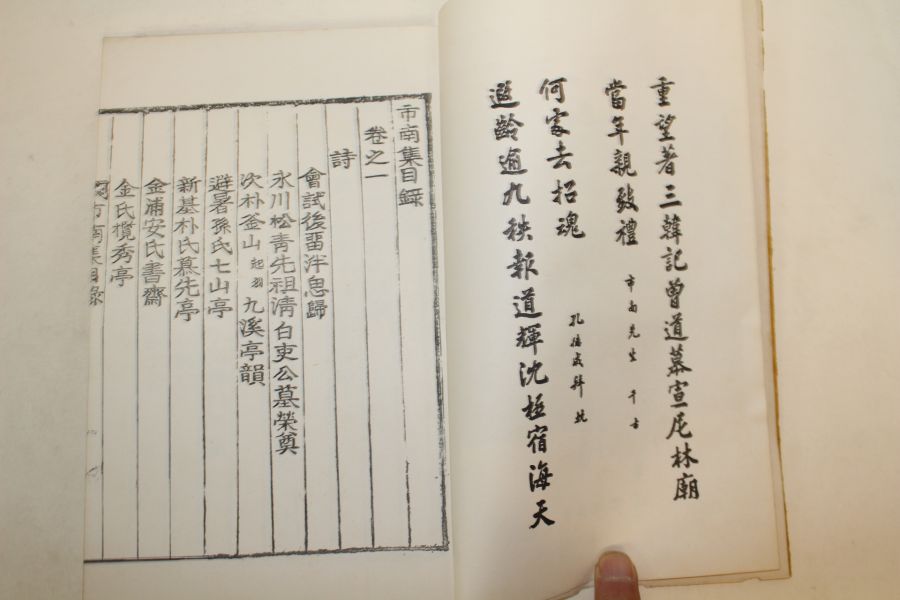 重望著三韓記曾道慕宣尼林廟
當年親致禮
市南先生 千古
遐齡逾九秩報道輝沈極宿海天
何處去招魂
孔德成拜輓
市南集目錄
卷之一
詩
會試後留泮息歸
氷川松青先祖淸白吏公墓榮奠
次朴釜山九溪亭韻
避暑孫氏七山亭
新基朴氏慕先亭
金浦安氏書齋
金氏攬秀亭
市南集目錄